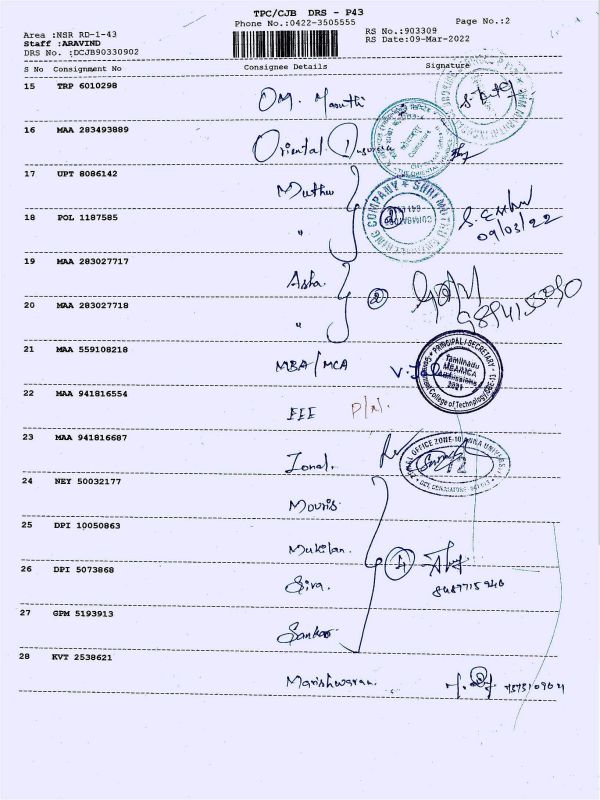 TPC/CJB DRS - P43
Phone No.:0422-3505555
Page No.:2
Area :NSR RD-1-43
RS No.:903309
Staff :ARAVIND
RS Date:09-Mar-2022
DRS No. :DCJB90330902
S No Consignment No Consignee Details Signature
15 TRP 6010298
OM. Maruthi
16 MAA 283493889
Oriental
17 UPT 8086142
Muthu
18 POL 1187585
"
COMPANY * SHRI MUTHU
09/03/22
19 MAA 283027717
Asha
20 MAA 283027718
"
2
21 MAA 559108218
MBA/MCA
PRINCIPAL/SECRETARY
Tamilnadu
MBA/MCA
Admissions
2021
College of Technology
22 MAA 941816554
EEE P/N.
23 MAA 941816687
Zonal.
OFFICE ZONE-10
24 NEY 50032177
Mouris
25 DPI 10050863
Mukilan.
4
26 DPI 5073868
Siva.
27 GPM 5193913
Sankar
28 KVT 2538621
Marishwaran.